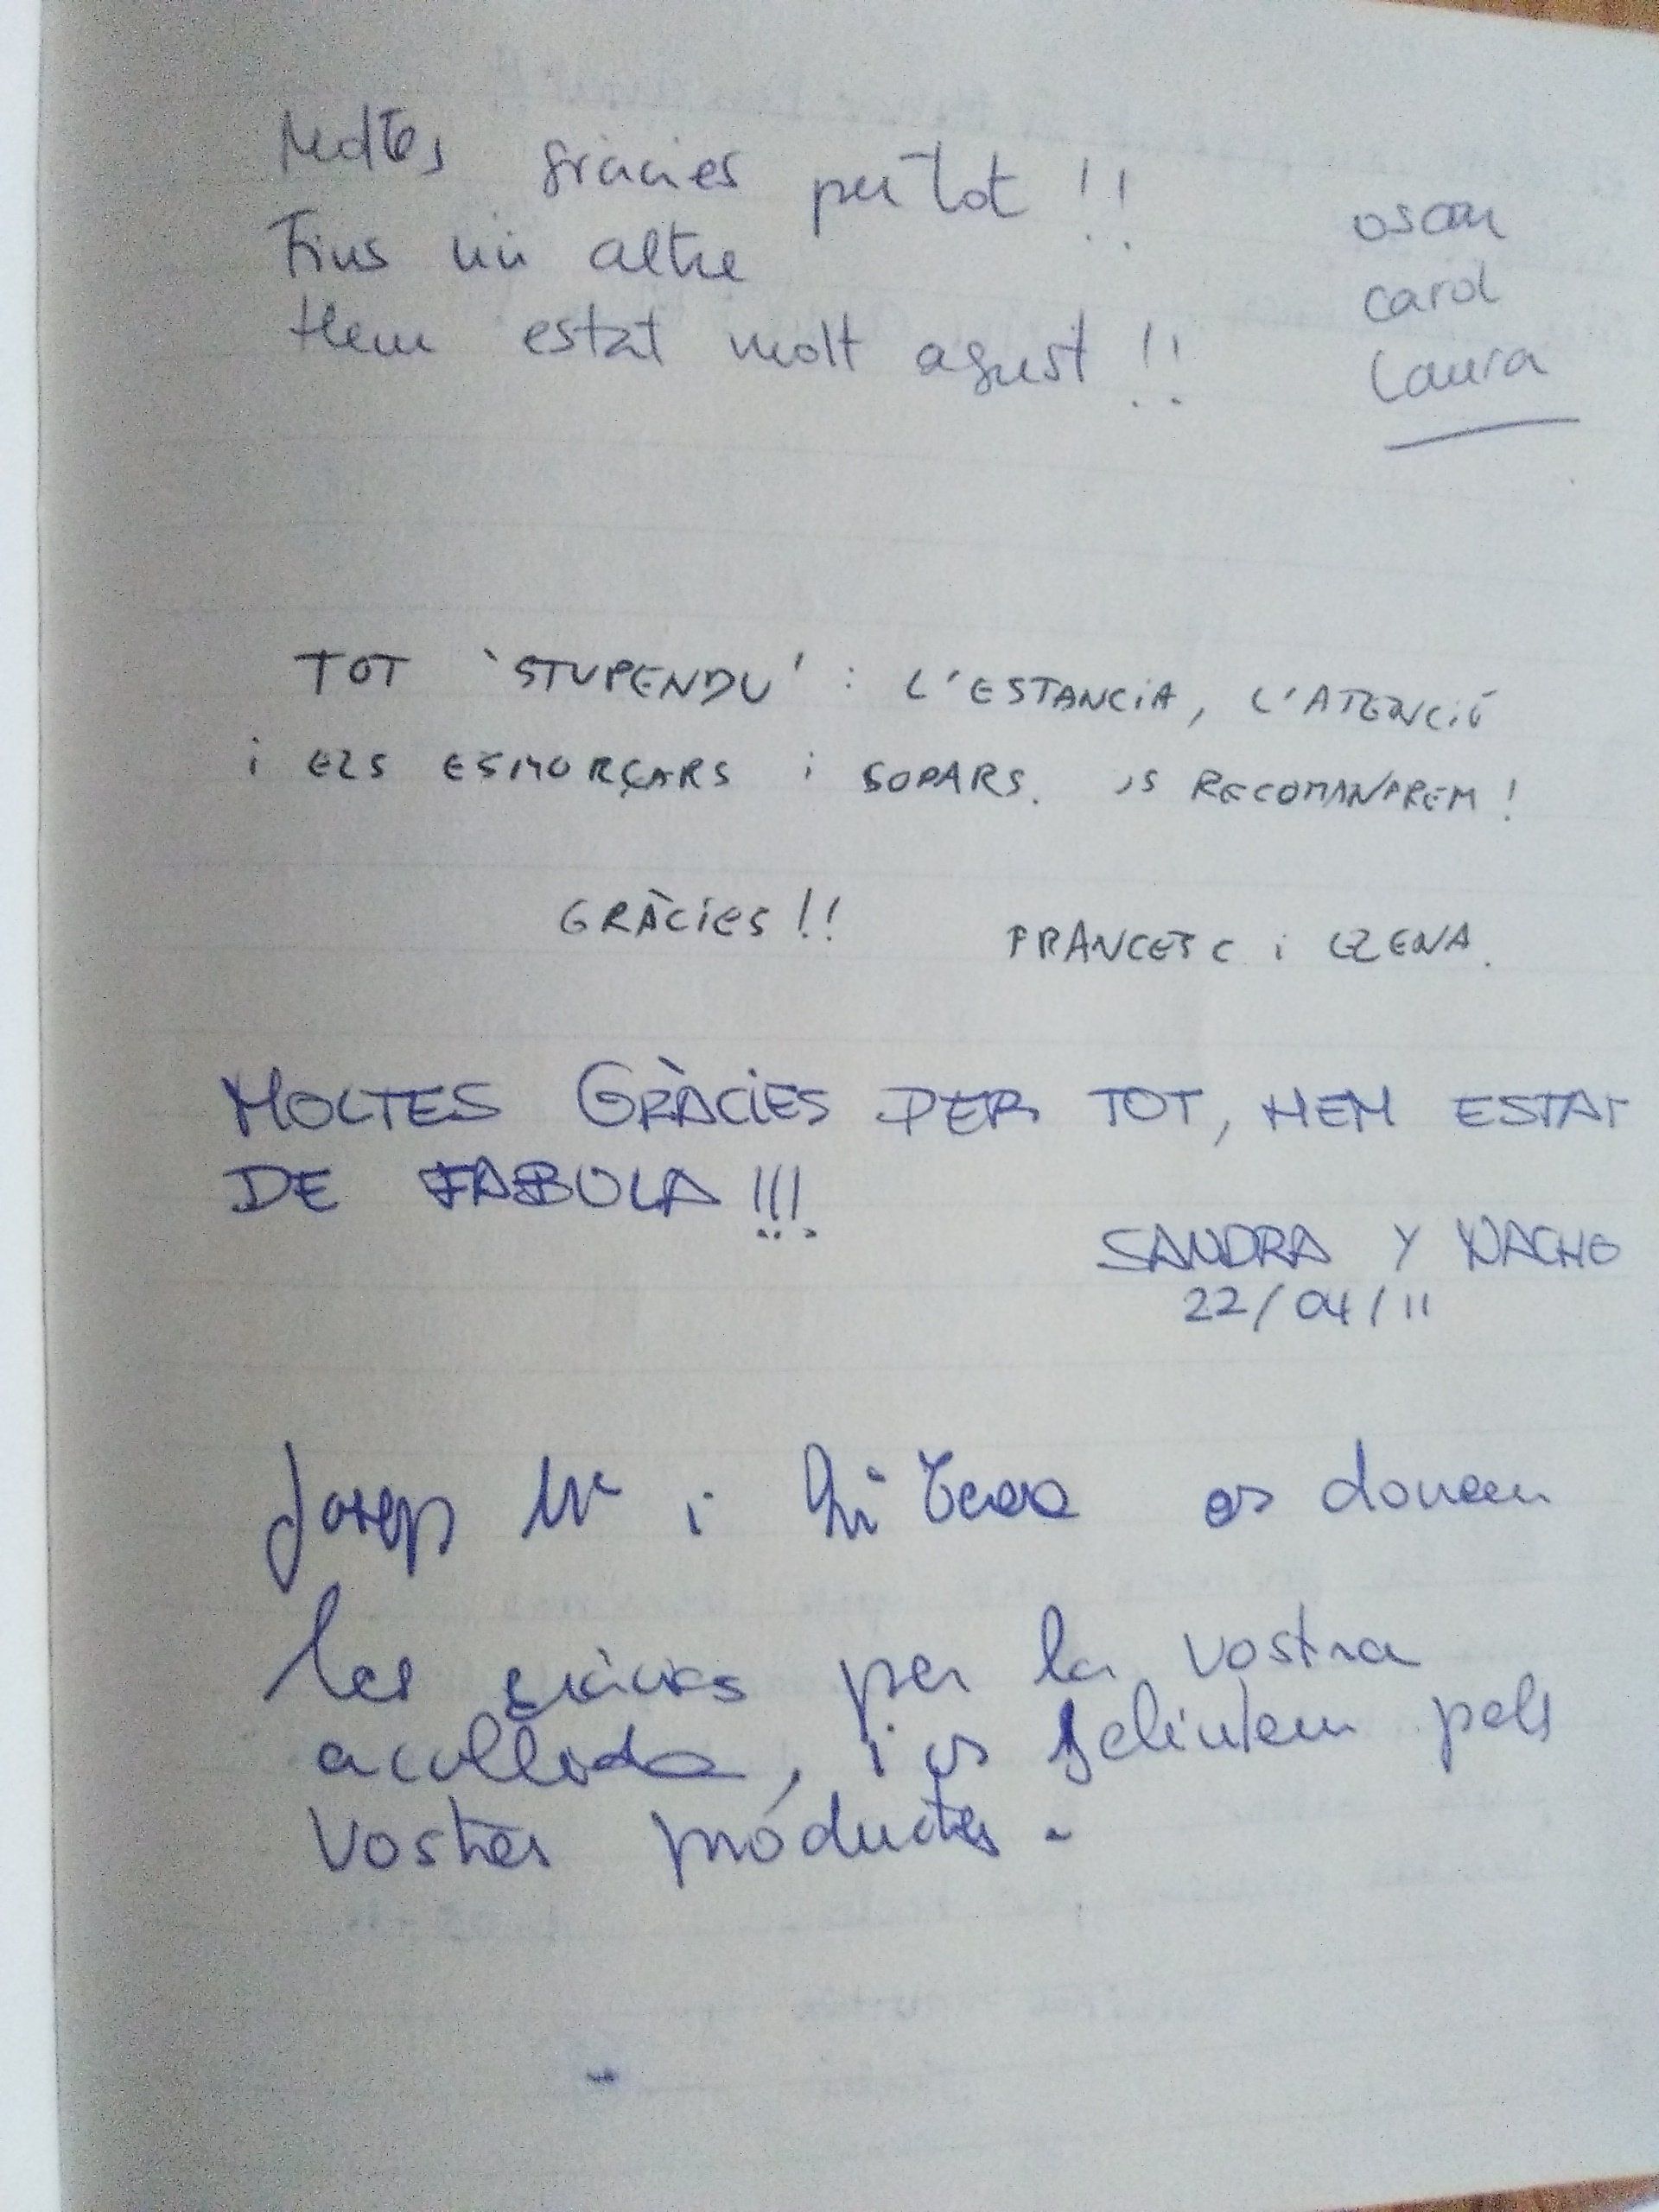 Moltes gràcies per tot !!
Fins un altre
Hem estat molt agust !!
oscar
carol
Laura
TOT 'STUPENDU' : L'ESTANCiA, L'ATENCiÓ
i ELS ESMORÇARS i SOPARS. US RECOMANAREM !
GRÀCiES !!
FRANCESC i ELENA.
MOLTES GRÀCiES PER TOT, HEM ESTAT
DE FABULA !!!
SANDRA Y NACHO
22/04/11
Josep Mª i os donem
les gràcies per la vostra
acollida, i us felicitem pels
vostres productes.